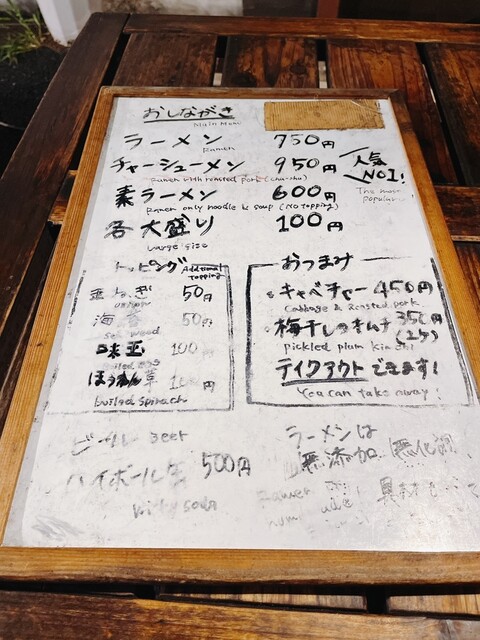 おしながき
Main Menu
ラーメン 750円
Ramen
チャーシューメン 950円
Ramen with roasted pork (cha-shu)
人気 NO1!
The most popular
素ラーメン 600円
Ramen only noodle & soup (No topping)
各大盛り 100円
Large size
トッピング Additional topping
玉ねぎ 50円
onion
海苔 50円
sea weed
味玉 100円
boiled egg
ほうれん草 円
boiled spinach
おつまみ
キャベチャー 450円
Cabbage & Roasted pork
梅干しキムチ 350円
pickled plum kimchi
テイクアウトできます!
You can take away!
ビール Beer
ハイボール 500円
soda
ラーメンは
無添加 無化調
Ramen